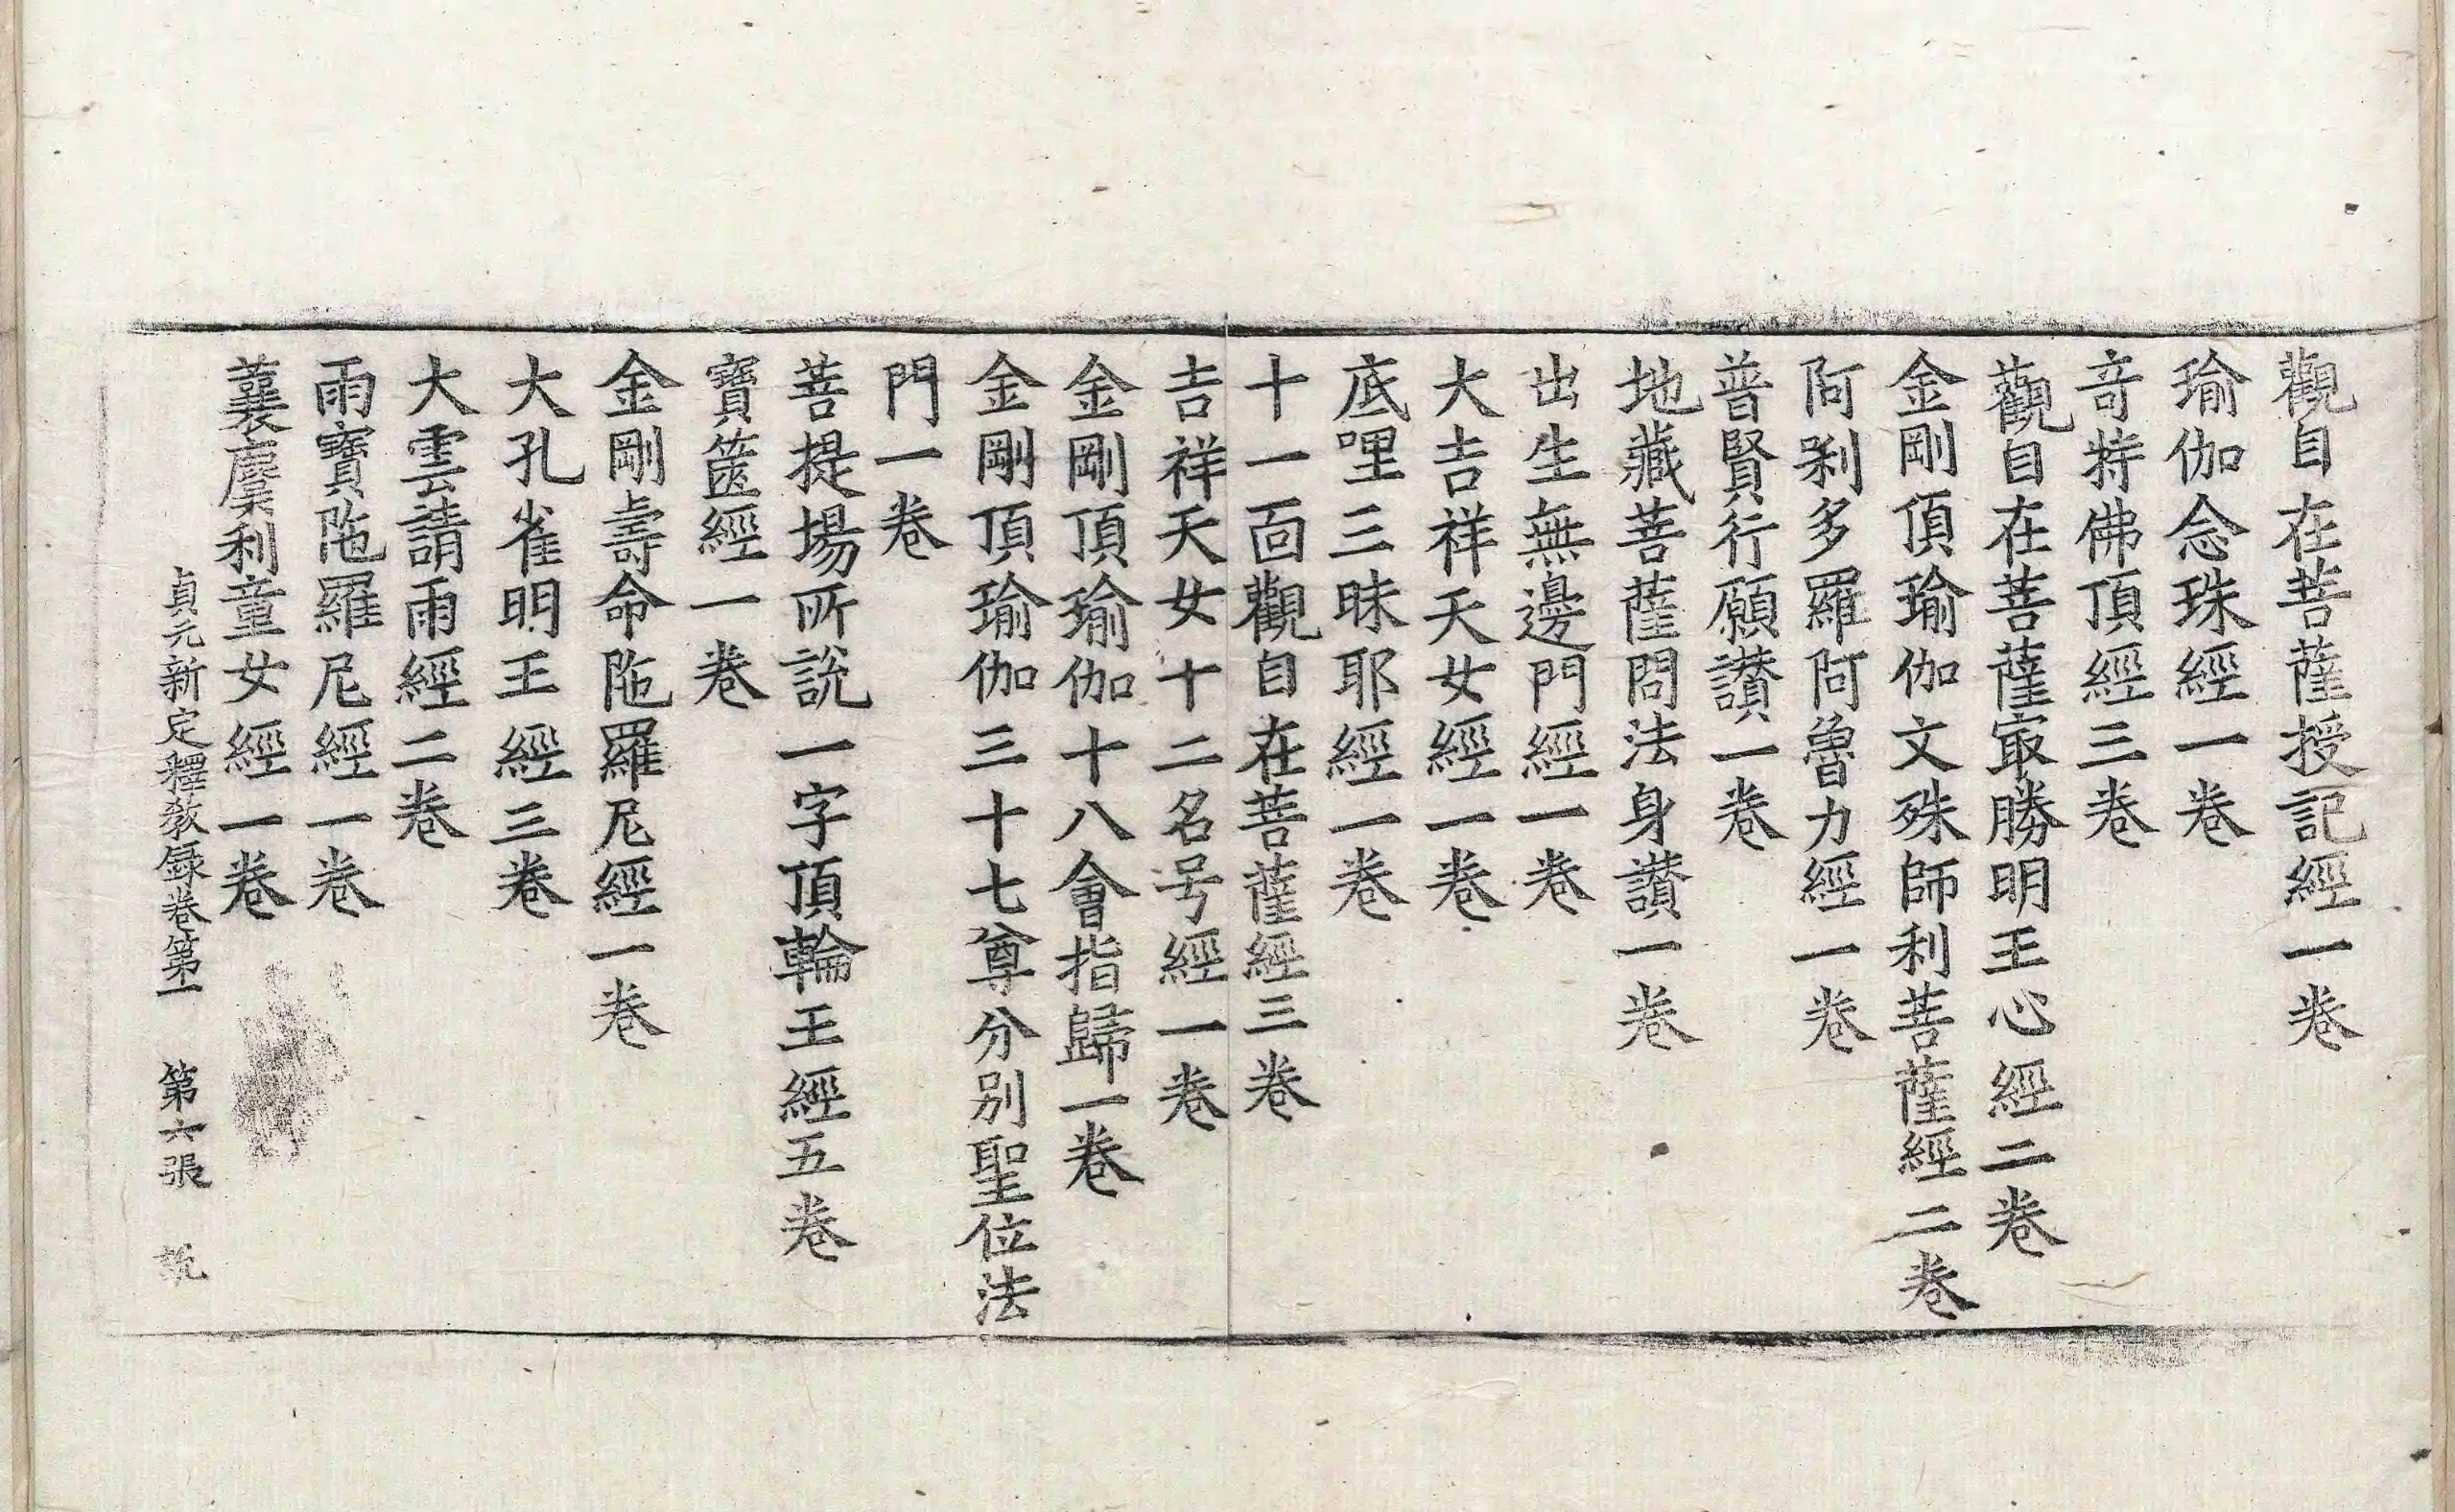 觀自在菩薩授記經一卷
瑜伽念珠經一卷
竒特佛頂經三卷
觀自在菩薩㝡勝明王心經二卷
金剛頂瑜伽文殊師利菩薩經二卷
阿唎多羅阿魯力經一卷
普賢行願讃一卷
地藏菩薩問法身讃一卷
出生無邊門經一卷
大吉祥天女經一卷
底哩三昧耶經一卷
十一面觀自在菩薩經三卷
吉祥天女十二名号經一卷
金剛頂瑜伽十八會指歸一卷
金剛頂瑜伽三十七尊分别聖位法
門一卷
菩提場所說一字頂輪王經五卷
寶篋經一卷
金剛壽命陁羅尼經一卷
大孔雀明王經三卷
大雲請雨經二卷
雨寶陁羅尼經一卷
蘘麌利童女經一卷
貞元新定釋教録卷第一 第六張 說